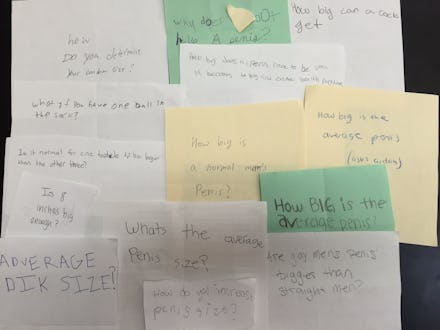 How big can a cock
get
why does NOT
A penis?
how
Do you determine
your condom size?
How big does a penis have to be until
it becomes
what if you have one ball in
the sack?
Is it normal for one testicle to be bigger
than the other three?
How big is
a normal men's
Penis?
How big is the
average penis
Is 8
inches big
enough?
How BIG is the
average penis?
Whats the average
Penis size?
ADVERAGE
DIK SIZE?
Are gay mens penis
bigger than
straight men?
How do you increase
penis size?